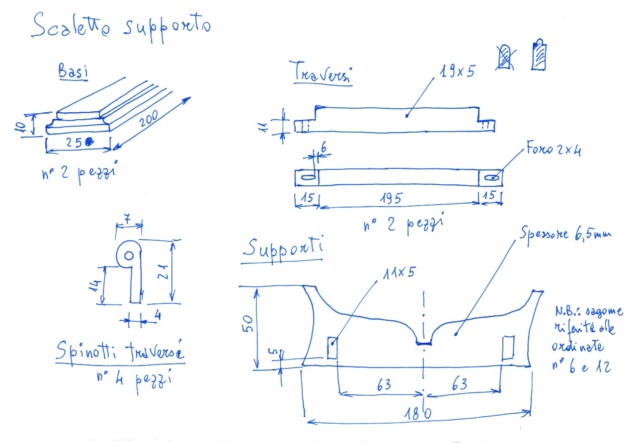 Scaletto supporto
Basi
10
25
200
n° 2 pezzi
Traversi
19x5
11
6
Foro 2x4
15
195
15
n° 2 pezzi
7
14
21
4
Spinotti traverse
n° 4 pezzi
Supporti
Spessore 6,5mm
11x5
50
5
63
63
180
N.B.: sagome
riferite alle
ordinate
n° 6 e 12